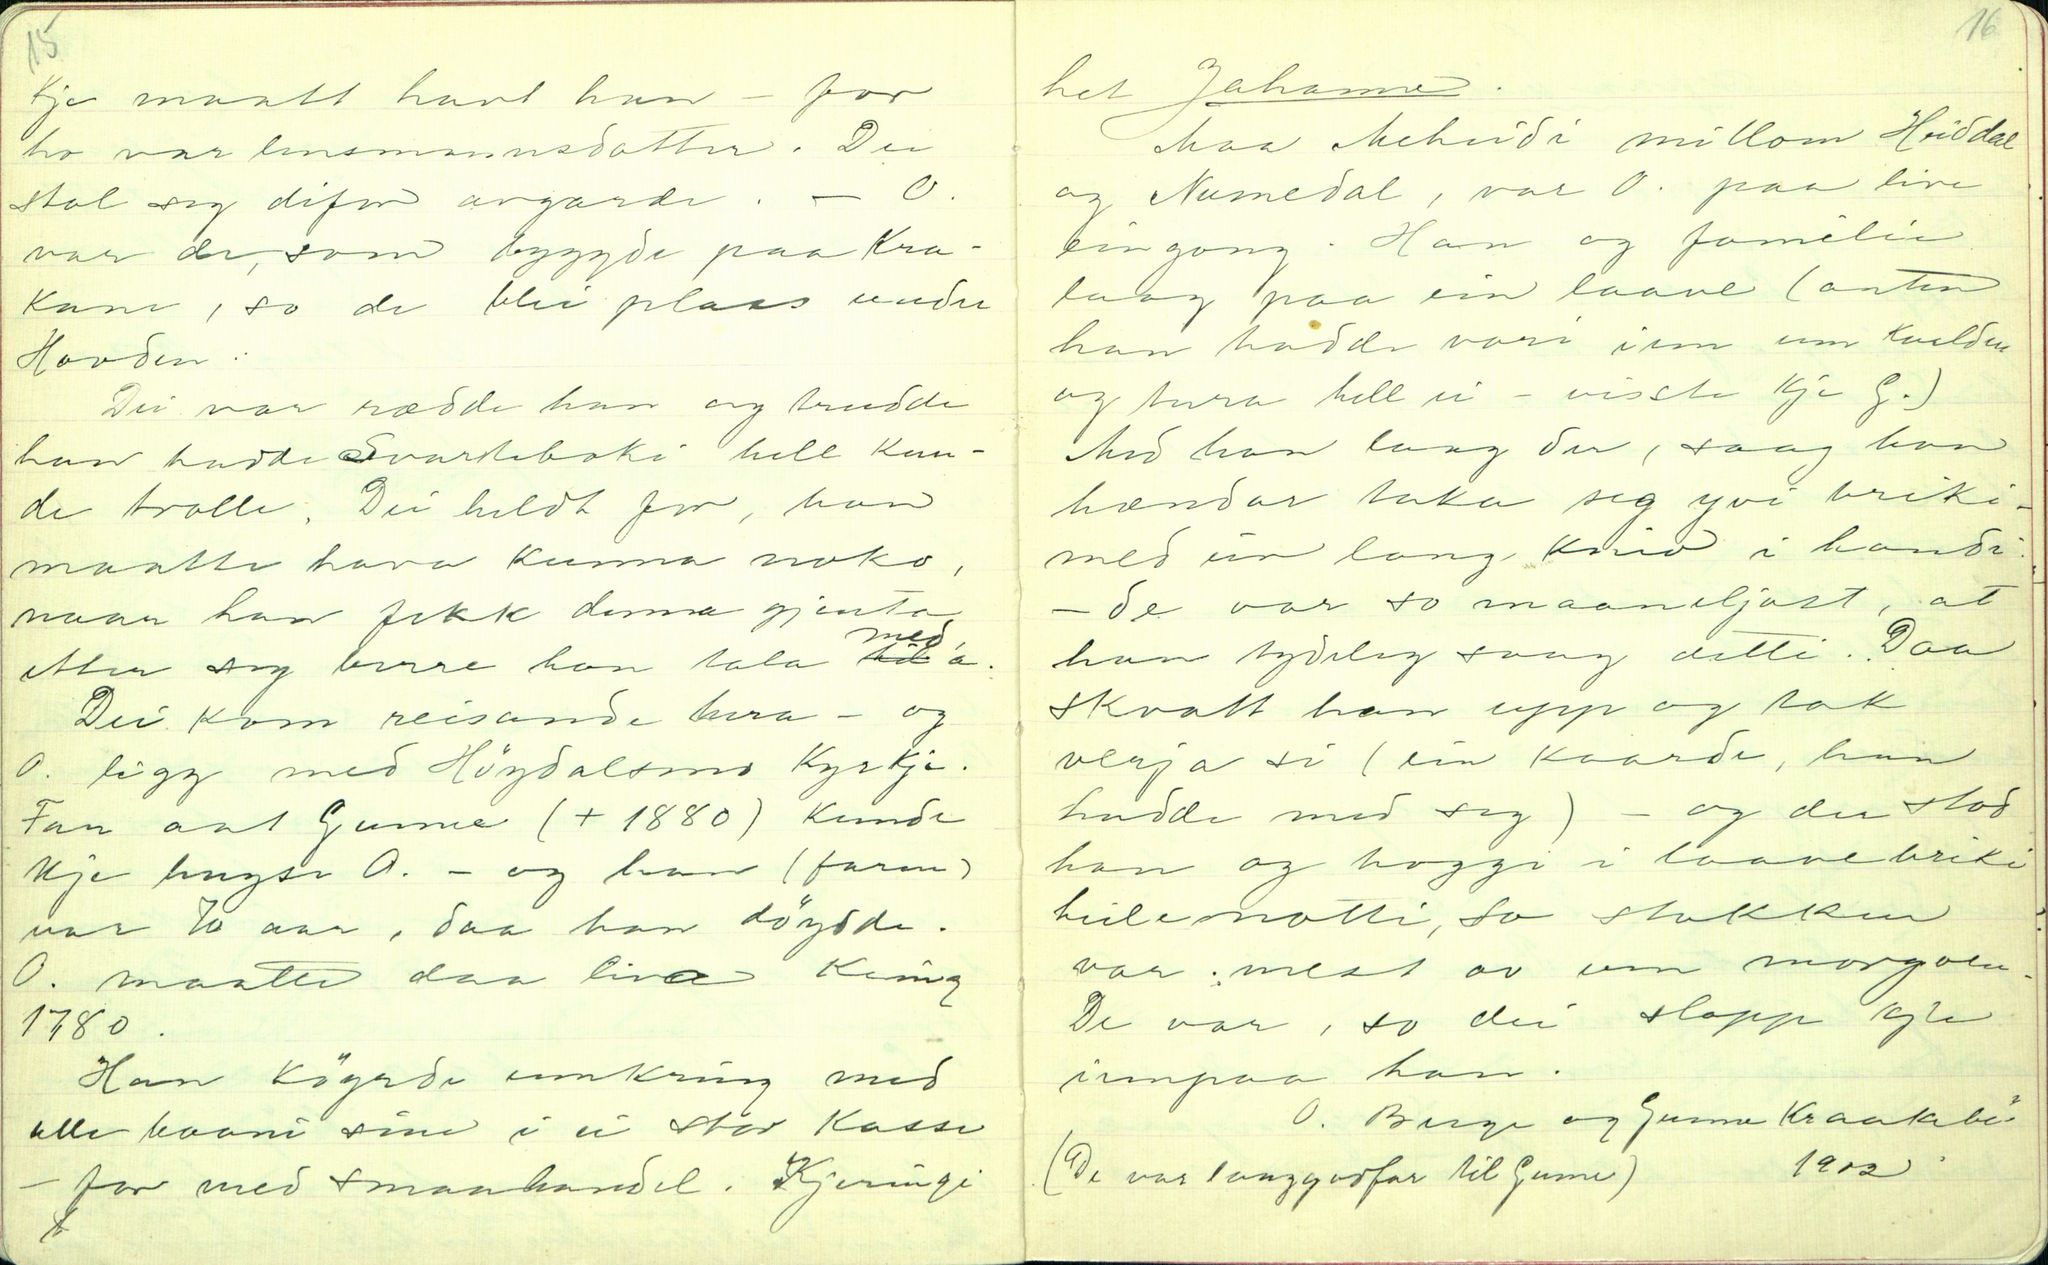 15
kje maatt havt han – for
ho var lensmannsdotter. Dei
stal seg difor avgarde. – O.
var de, som bygde paa Kra-
kane, so de blei plass under
Hovden.
Dei var rædde han og trudde
han hadde Svarteboki hell kun-
de trolle. Dei heldt for, han
maatte hava kunna noko,
naar han fekk denna gjenta
etter seg berre han tala med 'a.
Dei kom reisande hera – og
O. ligg med Höydalsmo Kyrkje.
Far aat Gunne (+ 1880) kunde
kje hugse O. – og han (faren)
var 70 aar, daa han döydde.
O. maatte daa liva kring
1780.
Han köyrde umkring med
alle baani sine i ei stor kasse
– for med smaahandel. Kjeringi
16
het Johanne.
Maa Meheidi millom Heiddal
og Numedal, var O. paa live
eingong. Han og familie
laag paa ein laave (anten
han hadde vori inn um kvelden
og tura hell ei – visste kje G.)
Med han laag der, saag han
hændar taka seg yvi briki –
med ein lang kniv i handi.
– de var so maaneljost, at
han tydeleg saag detti. Daa
skvatt han upp og tok
verja si (ein kaarde, han
hadde med seg) – og der stod
han og hoggi i laavebriki
heile notti, so stokken
var mest av um morgoen.
De var, so dei slapp kje
innpaa han.
O. Berge og Gunne Kraakebö
(De var langgodfar til Gunne) 1902